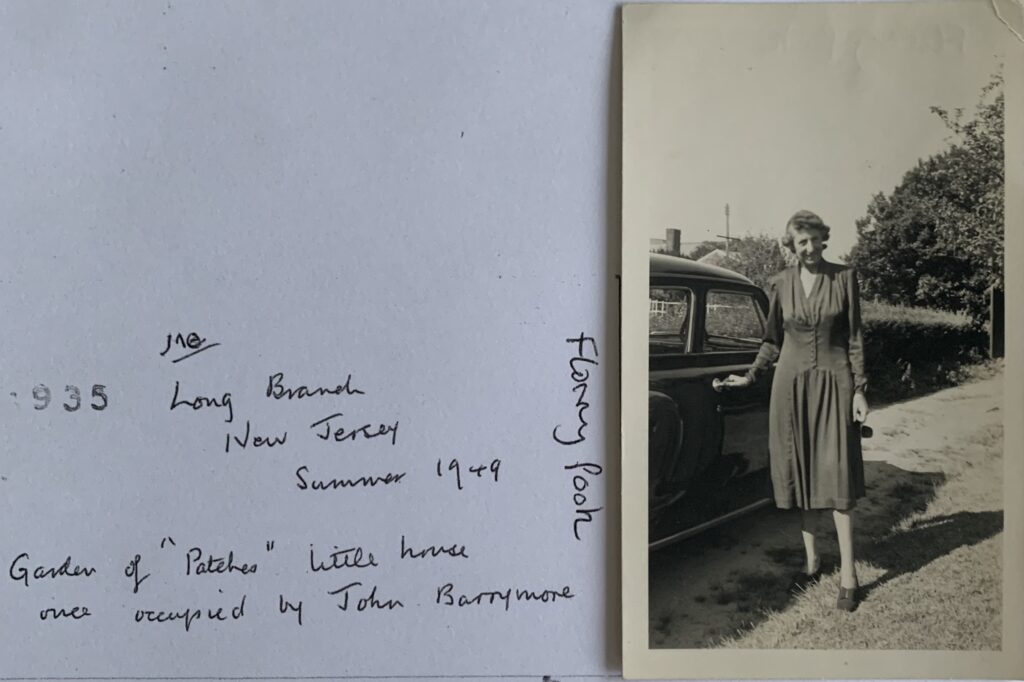 me
935
Long Branch
New Jersey
Summer 1949
Garden of "Patches" little house
once occupied by John Barrymore
Pooh